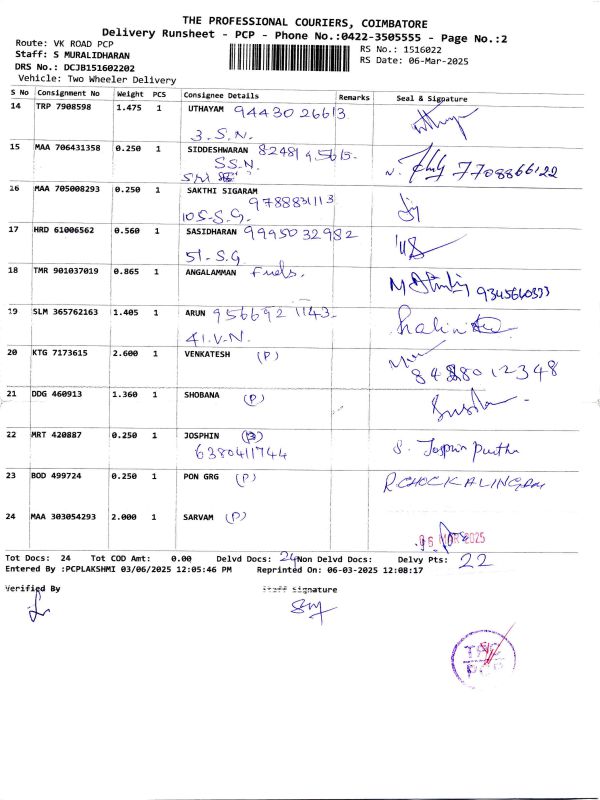 THE PROFESSIONAL COURIERS, COIMBATORE
Delivery Runsheet - PCP - Phone No.:0422-3505555 - Page No.:2
Route: VK ROAD PCP
RS No.: 1516022
Staff: S MURALIDHARAN
RS Date: 06-Mar-2025
DRS No.: DCJB151602202
Vehicle: Two Wheeler Delivery
S No Consignment No Weight PCS Consignee Details Remarks Seal & Signature
14 TRP 7908598 1.475 1 UTHAYAM 9443026613
3.S.N.
15 MAA 706431358 0.250 1 SIDDESHWARAN
S.S.N. 7708866122
16 MAA 705008293 0.250 1 SAKTHI SIGARAM
9788831113
10 S-S.G.
17 HRD 61006562 0.560 1 SASIDHARAN 9995032982
51-S.G
18 TMR 901037019 0.865 1 ANGALAMMAN Fuels.
19 SLM 365762163 1.405 1 ARUN 9566921143.
41.V.N.
20 KTG 7173615 2.600 1 VENKATESH (P)
21 DDG 460913 1.360 1 SHOBANA (P)
22 MRT 420887 0.250 1 JOSPHIN
6380411744
23 BOD 499724 0.250 1 PON GRG (P) R.CHOCKALINGAM
24 MAA 303054293 2.000 1 SARVAM (P)
06 MAR 2025
Tot Docs: 24 Tot COD Amt: 0.00 Delvd Docs: 24 Non Delvd Docs: Delvy Pts: 22
Entered By :PCPLAKSHMI 03/06/2025 12:05:46 PM Reprinted On: 06-03-2025 12:08:17
Verified By Staff Signature